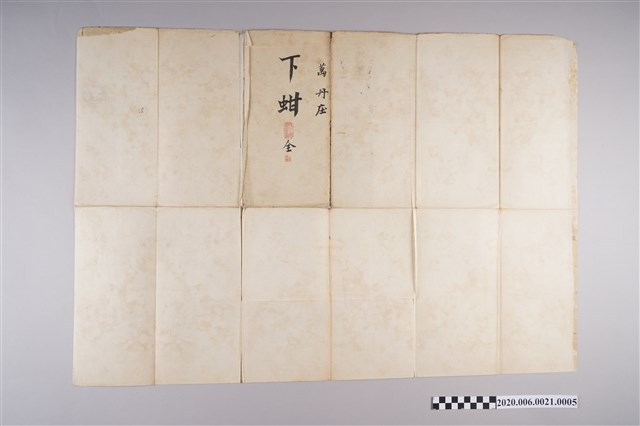 萬丹庄
下蚶
全
2020.006.0021.0005